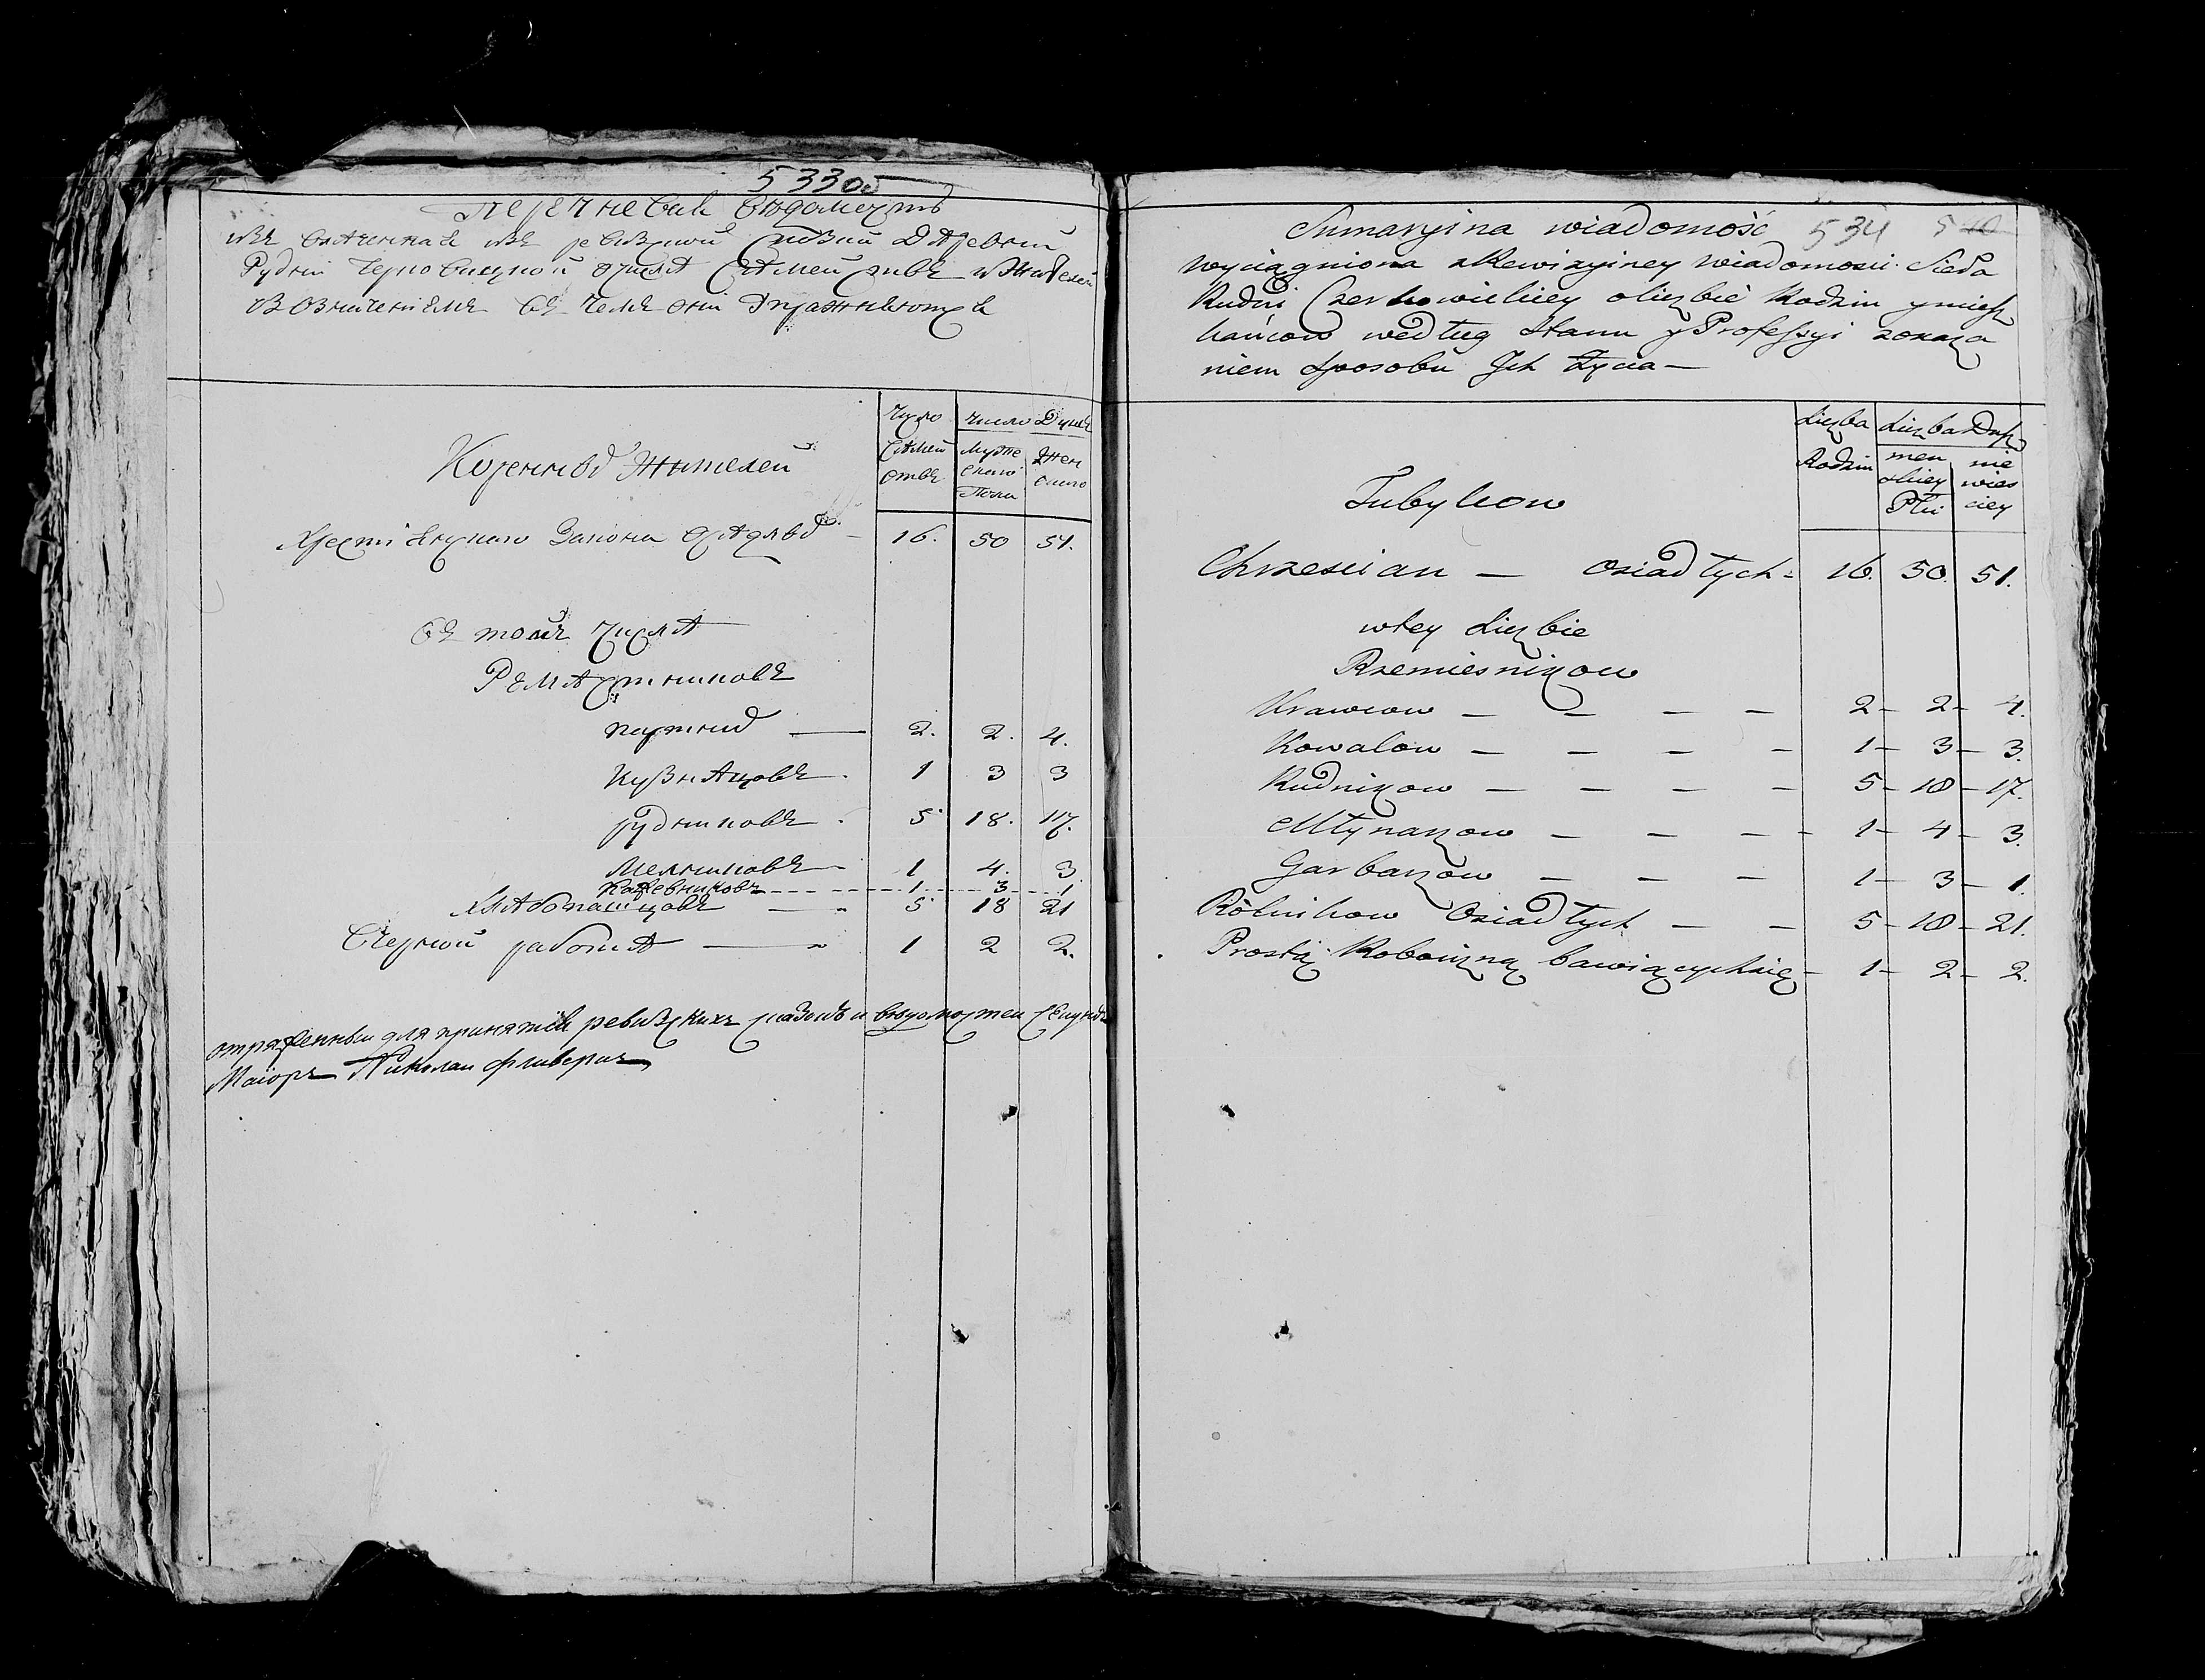 533об
Перечневая вѣдомость
изъ влѣченная изъ ревизской сказки дѣревни
Рудни Чернобицкой очислѣ сѣмействъ и жителей
въ означениемъ въ чемъ они упражняются
Число Число Душъ
Сѣмей ствъ Муже скаго Пола Жен скаго
Коренныхъ Жителей
Хрестіянскаго Закона осѣдлыхъ 16. 50 51.
въ томъ числѣ
Рѣмѣстниковъ
портныхъ — 2. 2. 4.
Кузнѣцовъ 1 3 3
рудниковъ 5 18. 17.
Мелниковъ 1 4. 3.
Кожевниковъ 1 3 1
хлѣбопашцовъ — 5 18 21
Счерной работѣ — 1 2 2.
отряженный для принятія ревизскихъ сказокъ и вѣдомостей Секундъ
Маіоръ Николай
534 540
Sumaryina wiadomość
wyciągniona z Rewizyiney wiadomosci Sieła
Rudni Czernowickiey o liczbie Rodzin y miesz
kańcow według Stanu y Professyi z okaza
niem sposobu Ich życia —
Liczba Liczba Dusz
Rodzin men skiey Płci nie wies ciey
Tubylcow
Chrzescian — Osiadłych 16. 50. 51.
w tey Liczbie
Rzemiesnikow
Krawcow — — — — 2 — 2 — 4.
Kowalow — — — — 1 — 3 — 3.
Rudnikow — — — — 5 — 18 — 17.
Młynarzow — — — 1 — 4 — 3.
Garbarzow — — — 1 — 3 — 1.
Rolnikow Osiadłych — — 5 — 18 — 21.
Prostą Robocizną bawiącychsię — 1 — 2 — 2.